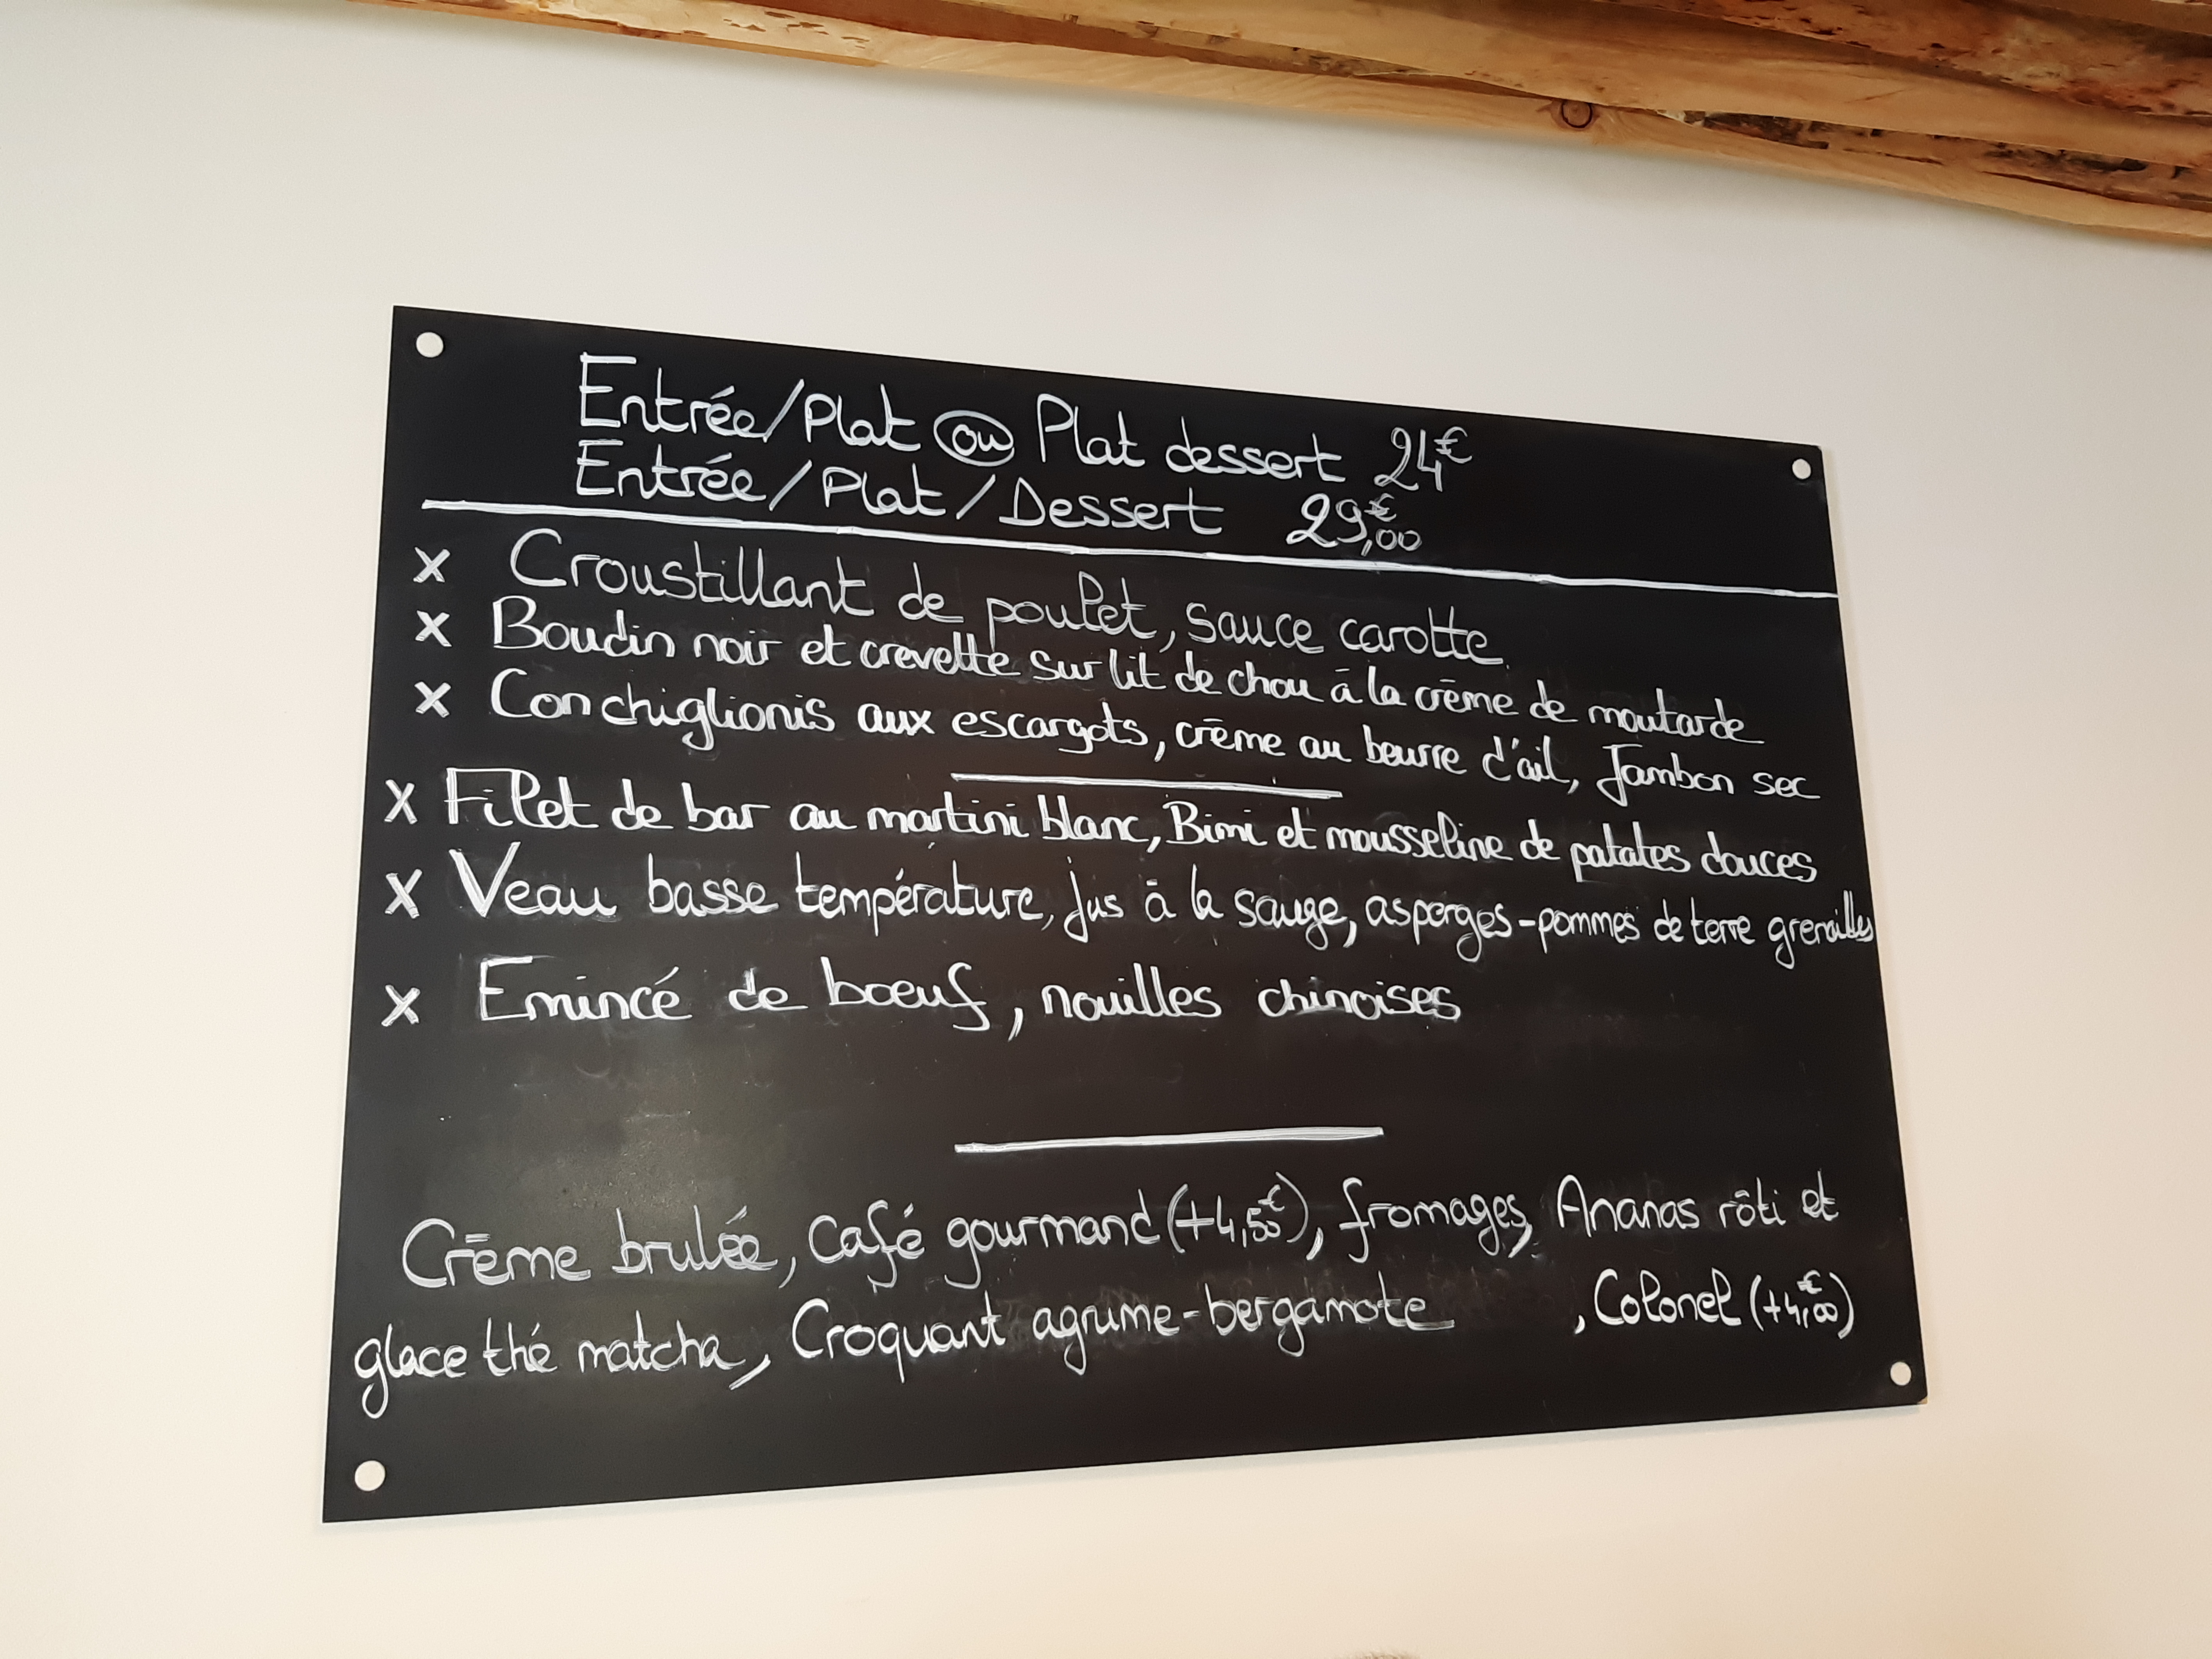 Entrée/Plat ou Plat dessert 24€
Entrée/Plat/Dessert 29,00€
x Croustillant de poulet, sauce carotte
x Boudin noir et crevette sur lit de chou à la crème de moutarde
x Conchiglionis aux escargots, crème au beurre d'ail, Jambon sec
x Filet de bar au martini blanc, Bimi et mousseline de patates douces
x Veau basse température, jus à la sauge, asperges-pommes de terre grenailles
x Emincé de boeuf, nouilles chinoises
Crème brulée, Café gourmand (+4,50€), fromages, Ananas rôti et
glace thé matcha, Croquant agrume-bergamote , Colonel (+4,00€)